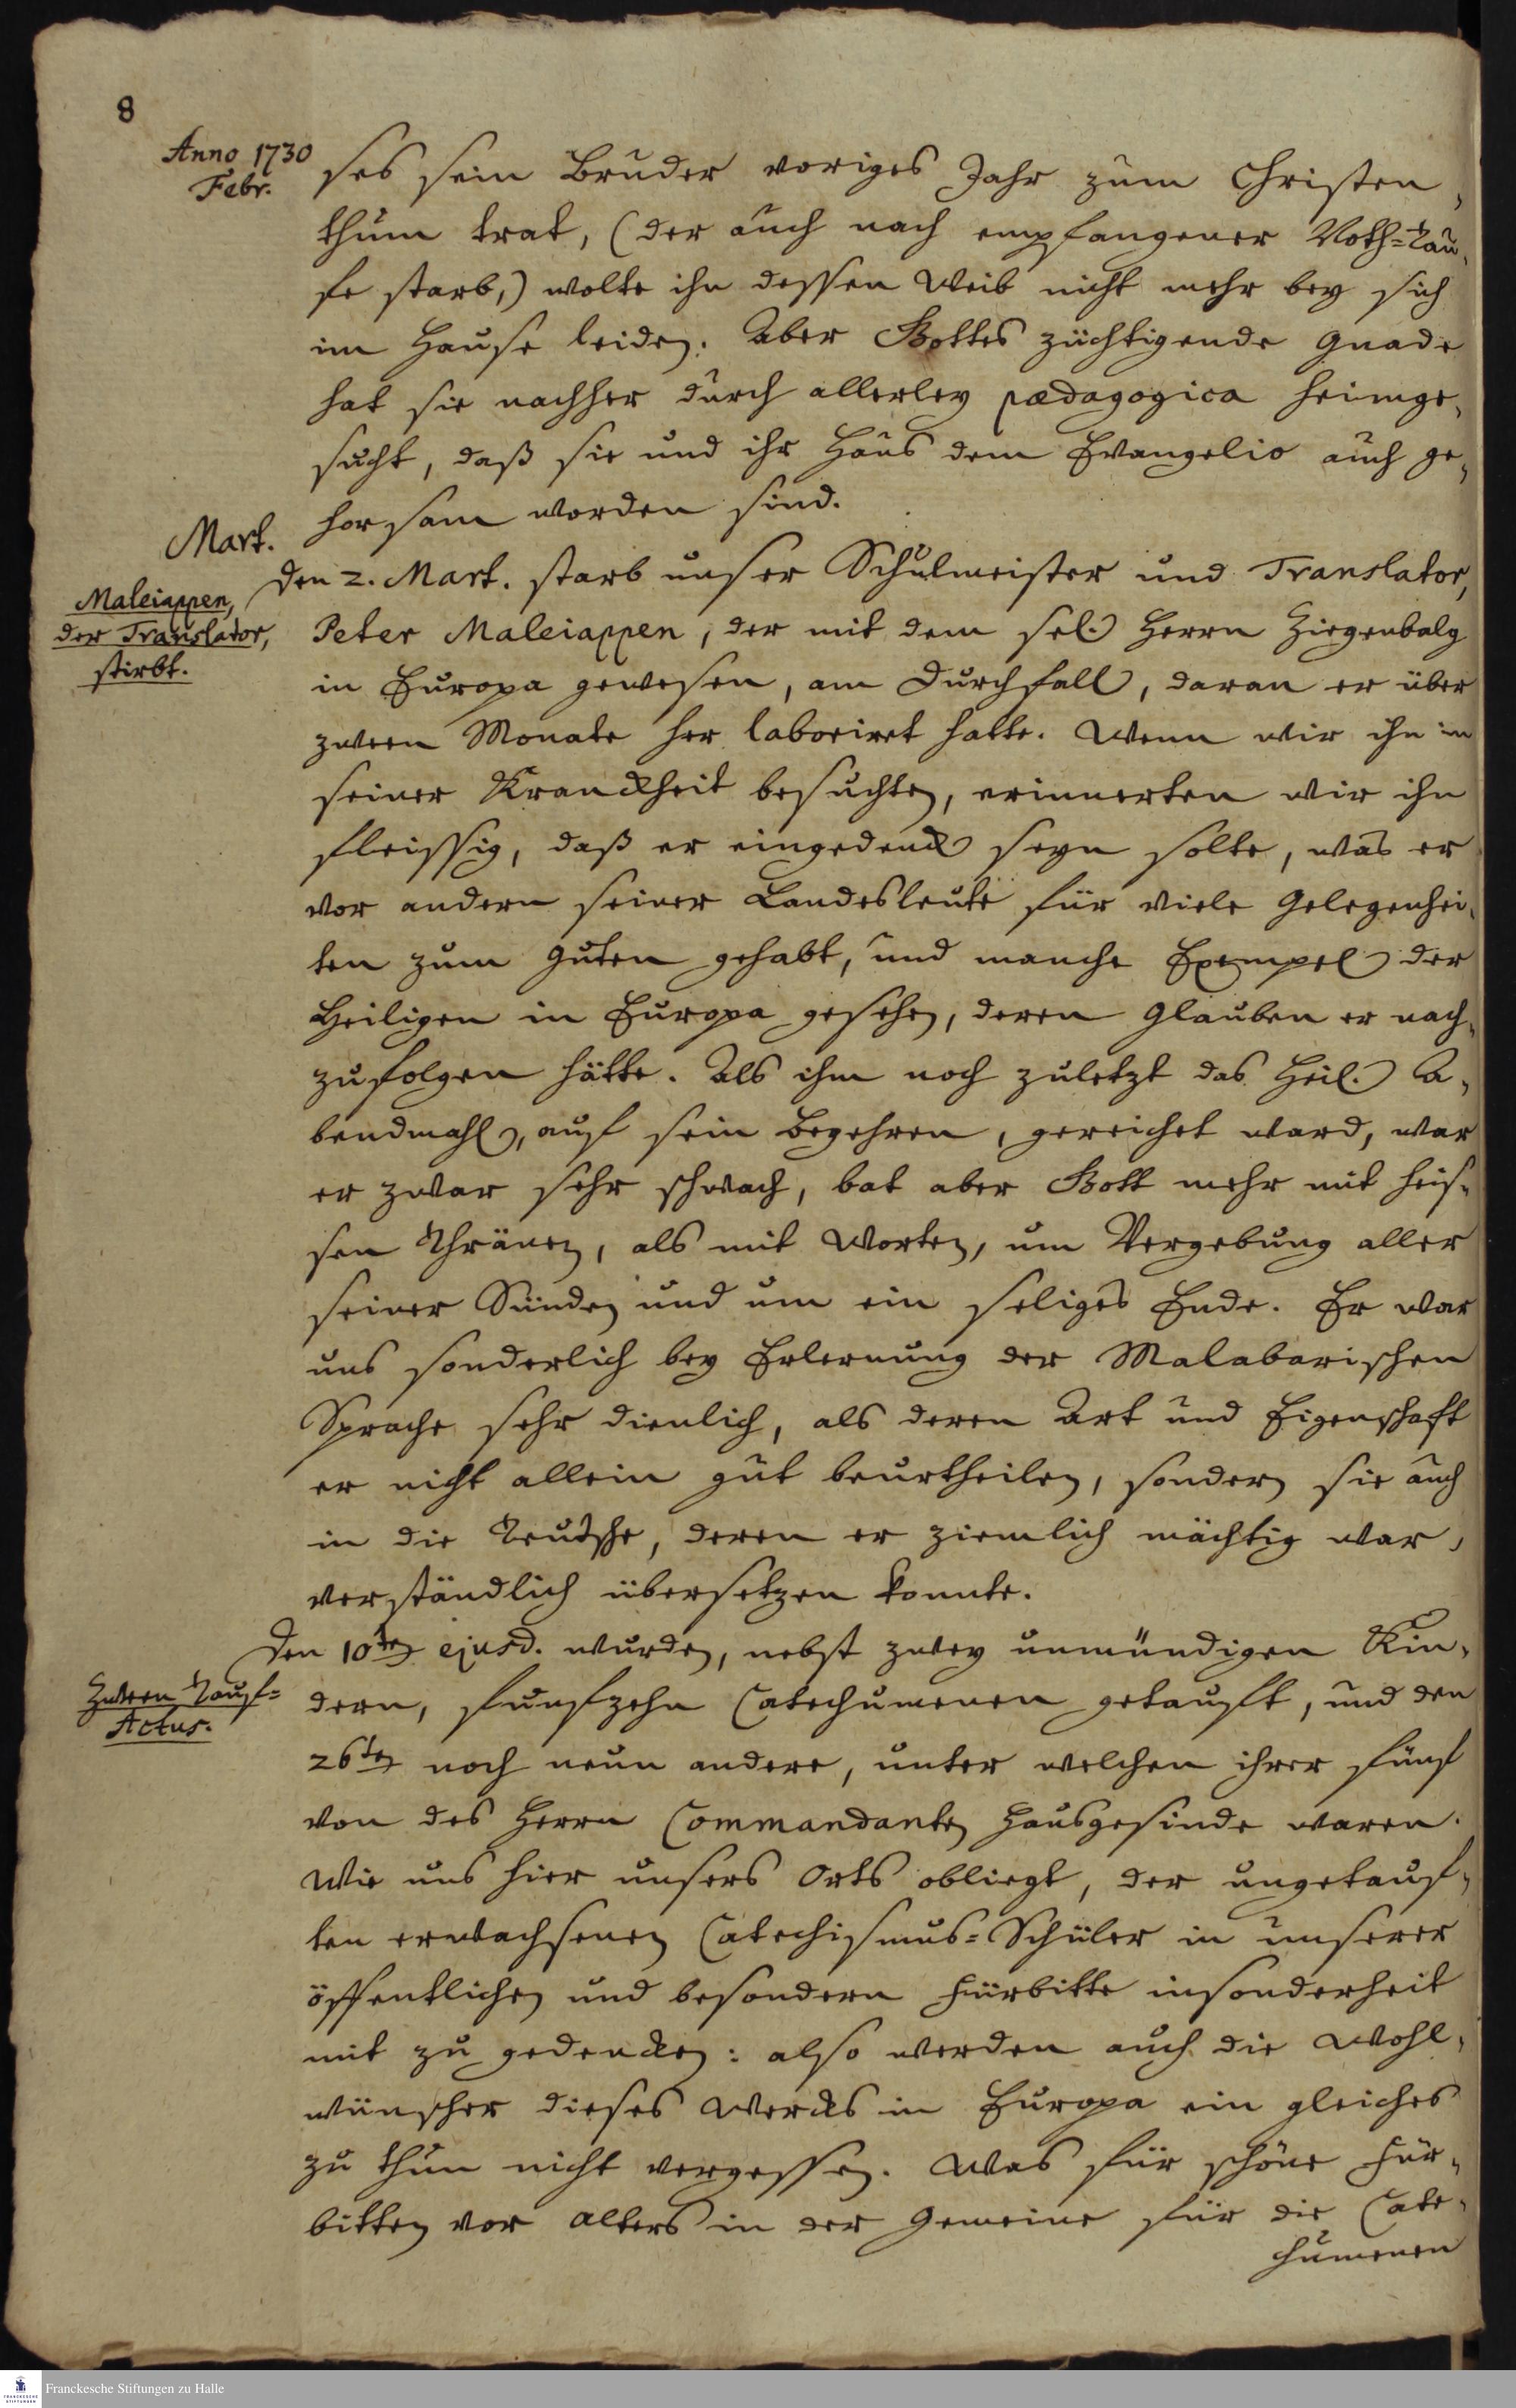 8
Anno 1730
Febr.
ses sein Bruder voriges Jahr zum Christen,
thum trat, (der auch nach empfangener Noth-Tau,
fe starb,) wolte ihn dessen Weib nicht mehr bey sich
im Hause leiden. Aber Gottes züchtigende Gnade
hat sie nachher durch allerley pædagogica heimge,
sucht, daß sie und ihr Haus dem Evangelio auch ge,
horsam worden sind.
Mart.
Maleiappen,
der Translator,
stirbt.
Den 2. Mart. starb unser Schulmeister und Translator,
Peter Maleiappen, der mit dem sel. Herrn Ziegenbalg
in Europa gewesen, am Durchfall, daran er über
zween Monate her laboriret hatte. Wenn wir ihn in
seiner Kranckheit besuchten, erinnerten wir ihn
fleissig, daß er eingedenck seyn solte, was er
vor andern seiner Landesleute für viele Gelegenhei,
ten zum Guten gehabt, und manche Exempel der
Heiligen in Europa gesehen, deren Glauben er nach,
zufolgen hätte. Als ihm noch zuletzt das Heil. A,
bendmahl, auf sein Begehren, gereichet ward, war
er zwar sehr schwach, bat aber Gott mehr mit heis,
sen Thränen, als mit Worten, um Vergebung aller
seiner Sünden und um ein seliges Ende. Er war
uns sonderlich bey Erlernung der Malabarischen
Sprache sehr dienlich, als deren Art und Eigenschaft
er nicht allein gut beurtheilen, sondern sie auch
in die Teutsche, deren er ziemlich mächtig war,
verständlich übersetzen konnte.
Zween Tauf-
Actus.
Den 10ten ejusd. wurden, nebst zwey unmündigen Kin,
dern, funfzehn Catechumenen getauft, und den
26ten noch neun andere, unter welchen ihrer fünf
von des Herrn Commandanten Hausgesinde waren.
Wie uns hier unsers Orts obliegt, der ungetauf,
ten erwachsenen Catechismus-Schüler in unserer
öffentlichen und besondern Fürbitte insonderheit
mit zu gedencken: also werden auch die Wohl,
wünscher dieses Wercks in Europa ein gleiches
zu thun nicht vergessen. Was für schöne Für,
bitten vor Alters in der Gemeine für die Cate,
chumenen
Franckesche Stiftungen zu Halle
FRANCKESCHE
STIFTUNGEN